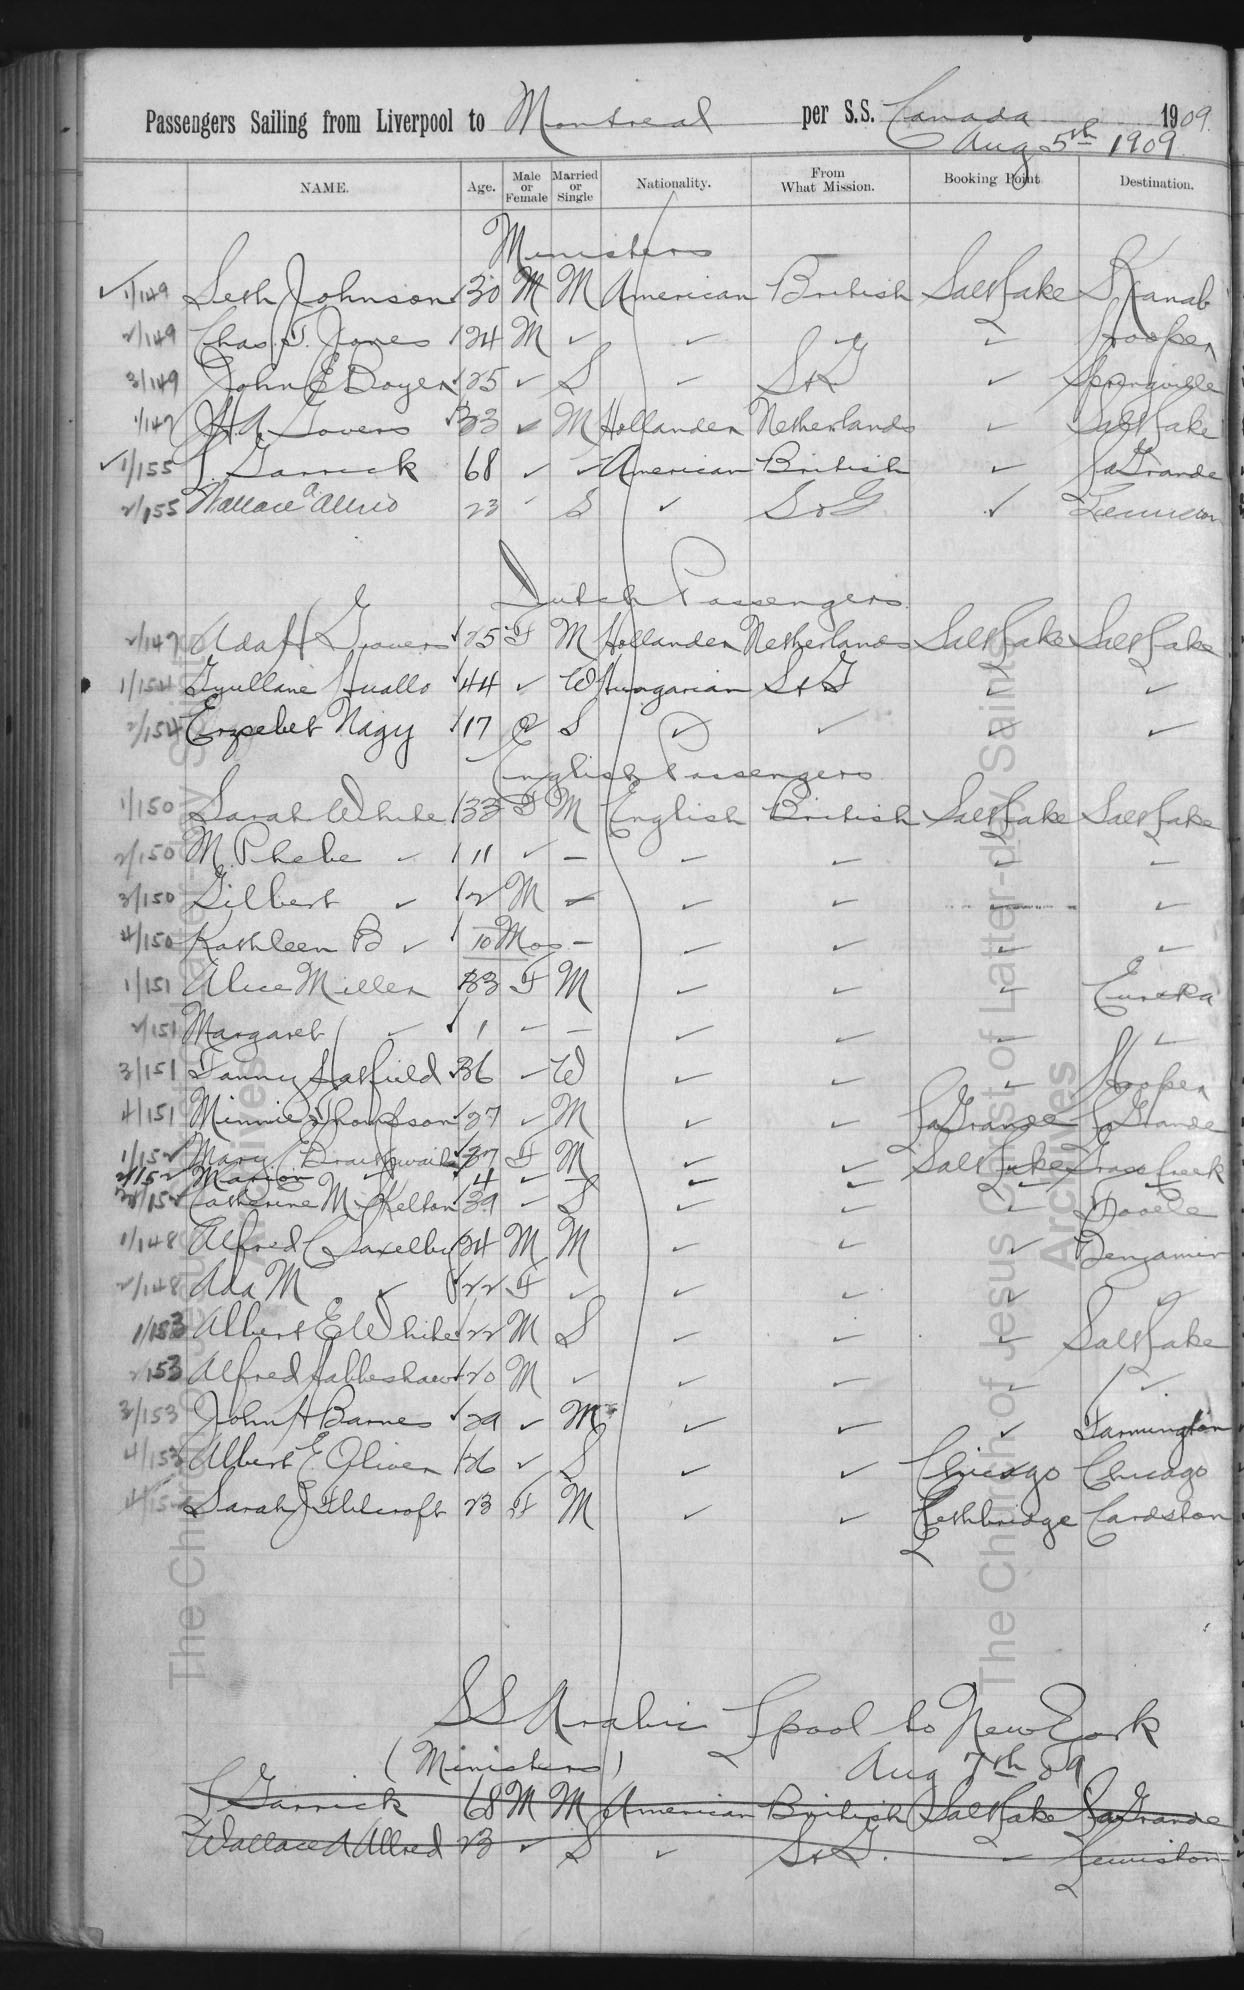 Passengers Sailing from Liverpool to Montreal per S.S. Canada 1909.
Aug 5th 1909
NAME. Age. Male or Female Married or Single Nationality. From What Mission. Booking Point Destination.
Ministers
✓ 1/149 Seth Johnson ✓ 30 M M American British Salt Lake Kanab
2/149 Chas. T. Jones ✓ 24 M ✓ ✓ ✓ ✓ Hooper
3/149 John E Boyer ✓ 25 ✓ S ✓ S&G ✓ Springville
1/147 H.A. Govers ✓ 33 ✓ M Hollander Netherlands ✓ Salt Lake
✓ 1/155 J. Garrick 68 ✓ ✓ American British ✓ LaGrande
2/155 Wallace A Allred 23 ✓ S ✓ S&G ✓ Lewiston
Dutch Passengers
2/147 Ada H Govers ✓ 25 F M Hollander Netherlands Salt Lake Salt Lake
1/154 Gyullane Huallo ✓ 44 ✓ W Hungarian S&G ✓ ✓
2/154 Erzsebet Nagy ✓ 17 ✓ S ✓ ✓ ✓ ✓
English Passengers
1/150 Sarah White ✓ 33 F M English British Salt Lake Salt Lake
2/150 M. Phebe ✓ ✓ 11 ✓ – ✓ ✓ ✓ ✓
3/150 Gilbert ✓ ✓ 2 M – ✓ ✓ ✓ ✓
4/150 Kathleen B ✓ ✓ 10 Mos – ✓ ✓ ✓ ✓
1/151 Alice Miller 33 F M ✓ ✓ ✓ Eureka
2/151 Margaret ✓ ✓ 1 – – ✓ ✓ ✓ ✓
3/151 Fanny Hatfield ✓ 36 ✓ W ✓ ✓ ✓ Hooper
4/151 Minnie Thompson ✓ 27 ✓ M ✓ ✓ LaGrande LaGrande
1/152 Mary E Braithwaite ✓ 37 F M ✓ ✓ Salt Lake Grass Creek
2/152 Marion ✓ ✓ 4 ✓ – ✓ ✓ ✓ ✓
3/152 Catherine M. Kelton 39 ✓ S ✓ ✓ ✓ Tooele
1/148 Alfred C Saxelby 24 M M ✓ ✓ ✓ Benjamin
2/148 Ada M ✓ ✓ 22 F ✓ ✓ ✓ ✓ ✓
1/153 Albert E White ✓ 22 M S ✓ ✓ ✓ Salt Lake
2/153 Alfred Habbeshaw ✓ 20 M ✓ ✓ ✓ ✓ ✓
3/153 John H Barnes ✓ 29 ✓ M ✓ ✓ ✓ Farmington
4/153 Albert E Oliver ✓ 26 ✓ S ✓ ✓ Chicago Chicago
4/152 Sarah J 23 F M ✓ ✓ Lethbridge Cardston
SS Arabic L'pool to New York
(Ministers) Aug 7th 09
J Garrick 68 M M American British Salt Lake LaGrande
Wallace A Allred 23 ✓ S ✓ S&G. ✓ Lewiston
The Church of Jesus Christ of Latter-day Saints
Archives
The Church of Jesus Christ of Latter-day Saints
Archives